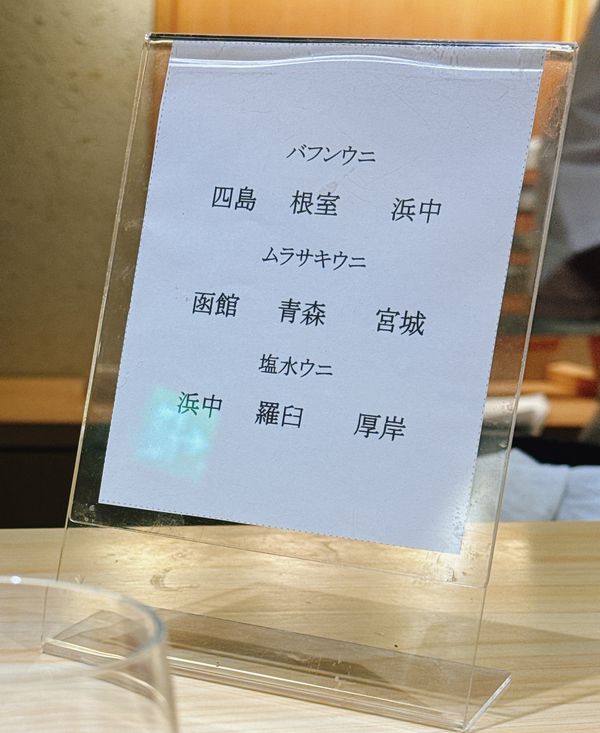 バフンウニ
四島 根室 浜中
ムラサキウニ
函館 青森 宮城
塩水ウニ
浜中 羅臼 厚岸